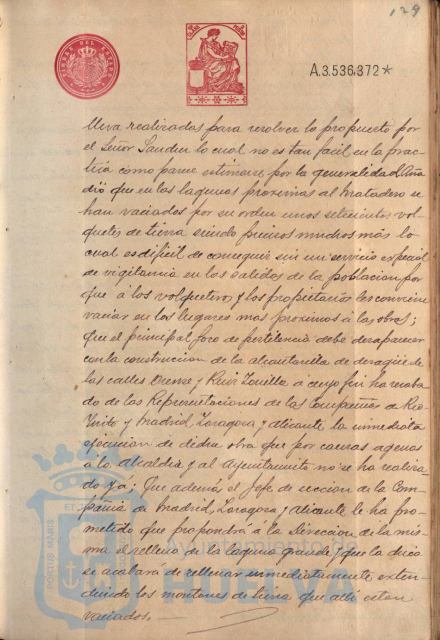 129
TIMBRE DEL ESTADO
A.3.536.372*
lleva realizados para resolver lo propuesto por
el Señor Sanden lo cual no es tan fácil en la prac-
tica como parece estimarse por la generalidad. Aña
dió que en las lagunas proximas al Matadero se
han vaciados por su orden unos setecientos vol-
quetes de tierra siendo precisos muchos más lo
cual es dificil de conseguir sin un servicio especial
de vigilancia en las salidas de la poblacion por
que á los volqueteros y los propietarios les conviene
vaciar en los lugares mas proximos á las obras;
que el principal foco de pestilencia debe desaparecer
con la construccion de la alcantarilla de desagüe de
las calles Orense y Ruiz Zorrilla a cuyo fin ha recaba
do de las Representaciones de las Compañias de Rio-
Tinto y Madrid, Zaragoza y Alicante la inmediata
ejecucion de dicha obra que por causas agenas
á la alcaldia y al Ayuntamiento no se ha realiza-
do ya; Que además el Jefe de seccion de la Com-
pañia de Madrid, Zaragoza y Alicante le ha pro-
metido que propondrá á la Direccion de la mis-
ma el relleno de la laguna grande y que la chica
se acabará de rellenar inmediatamente exten-
diendo los montones de tierra que alli estan
vaciados.
PORTUS MARIS
Ayuntamiento
HUELVA